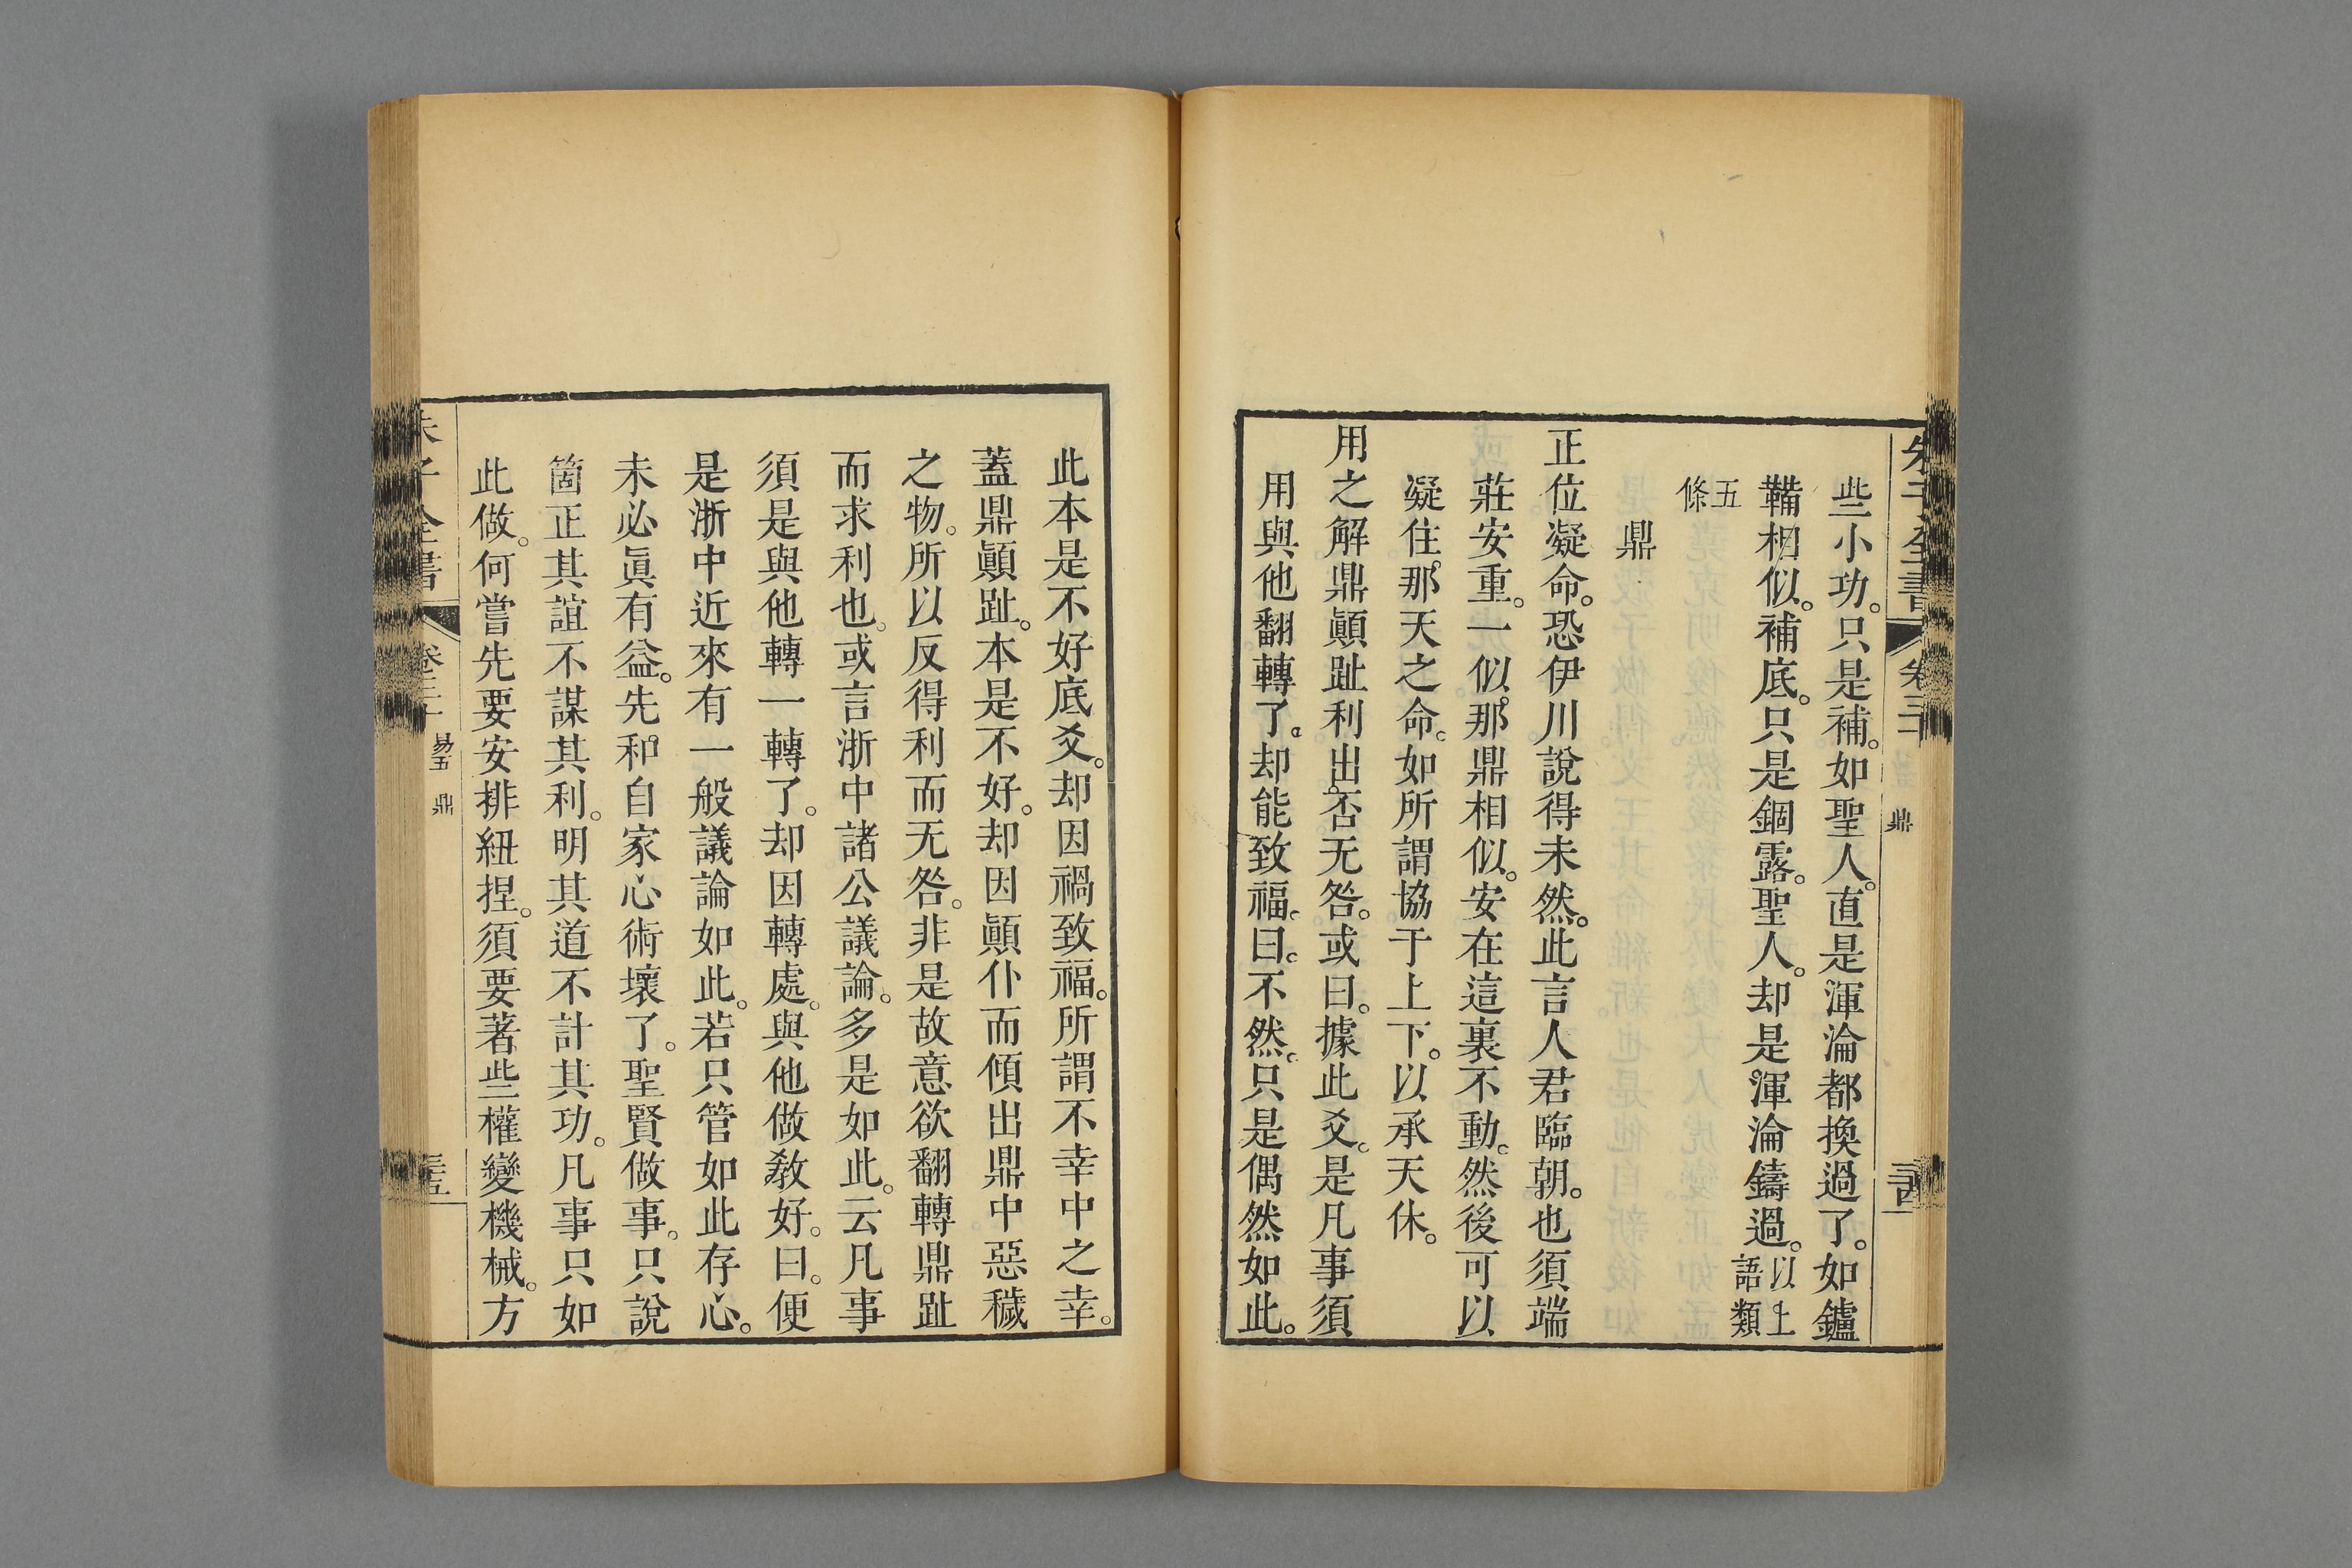 些小功。只是補。如聖人。直是渾淪都換過了。如鑪
鞴相似。補底。只是錮露。聖人。却是渾淪鑄過。以上語類
五條
鼎
正位凝命。恐伊川說得未然。此言人君臨朝。也須端
莊安重。一似那鼎相似。安在這裏不動。然後可以
凝住那天之命。如所謂協于上下。以承天休。
用之解鼎顚趾利出否无咎。或曰。據此爻。是凡事須
用與他翻轉了。却能致福。曰。不然。只是偶然如此。
此本是不好底爻。却因禍致福。所謂不幸中之幸。
蓋鼎顚趾。本是不好。却因顚仆而傾出鼎中惡穢
之物。所以反得利而无咎。非是故意欲翻轉鼎趾
而求利也。或言浙中諸公議論。多是如此。云凡事
須是與他轉一轉了。却因轉處。與他做敎好。曰。便
是浙中近來有一般議論如此。若只管如此存心。
未必眞有益。先和自家心術壞了。聖賢做事。只說
箇正其誼不謀其利。明其道不計其功。凡事只如
此做。何嘗先要安排紐捏。須要著些權變機械。方
朱子全書
卷三十
易五
鼎
三十五